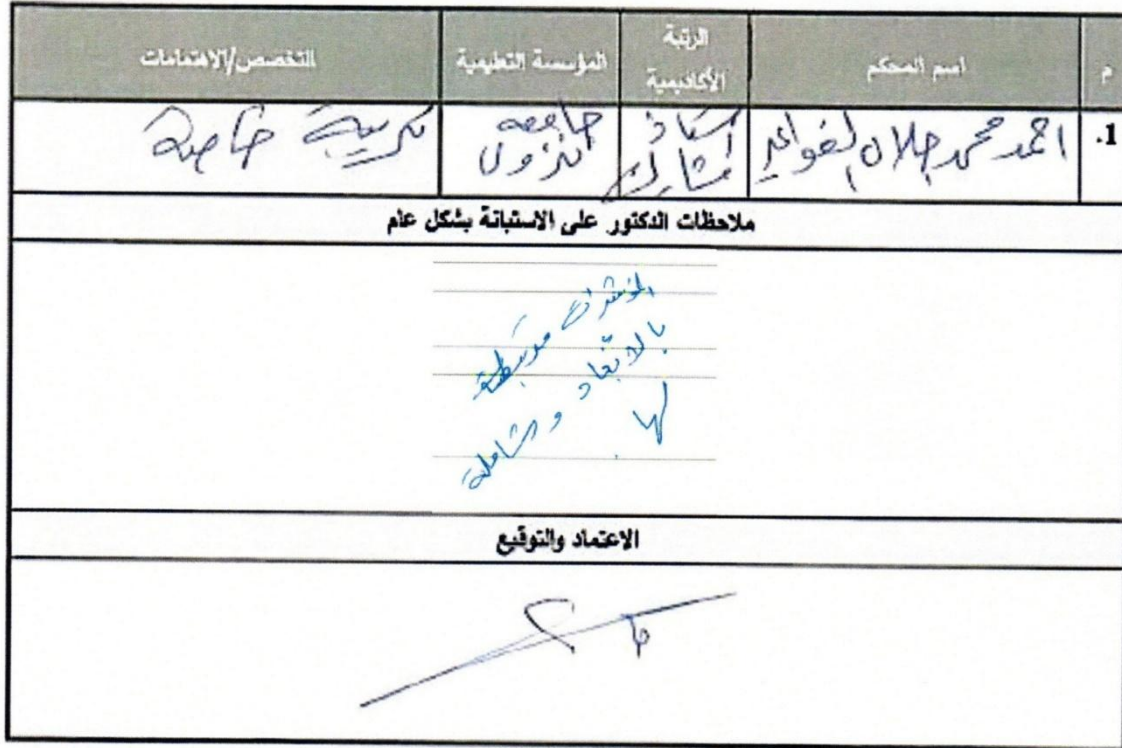 م
اسم المحكم
الرتبة الأكاديمية
المؤسسة التعليمية
التخصص/الاهتمامات
1.
احمد محمد جلال الفواعير
استاذ مشارك
جامعة نزوى
تربية خاصة
ملاحظات الدكتور على الاستبانة بشكل عام
المؤشرات مرتبطة
بالابعاد وشاملة
لها.
الاعتماد والتوقيع